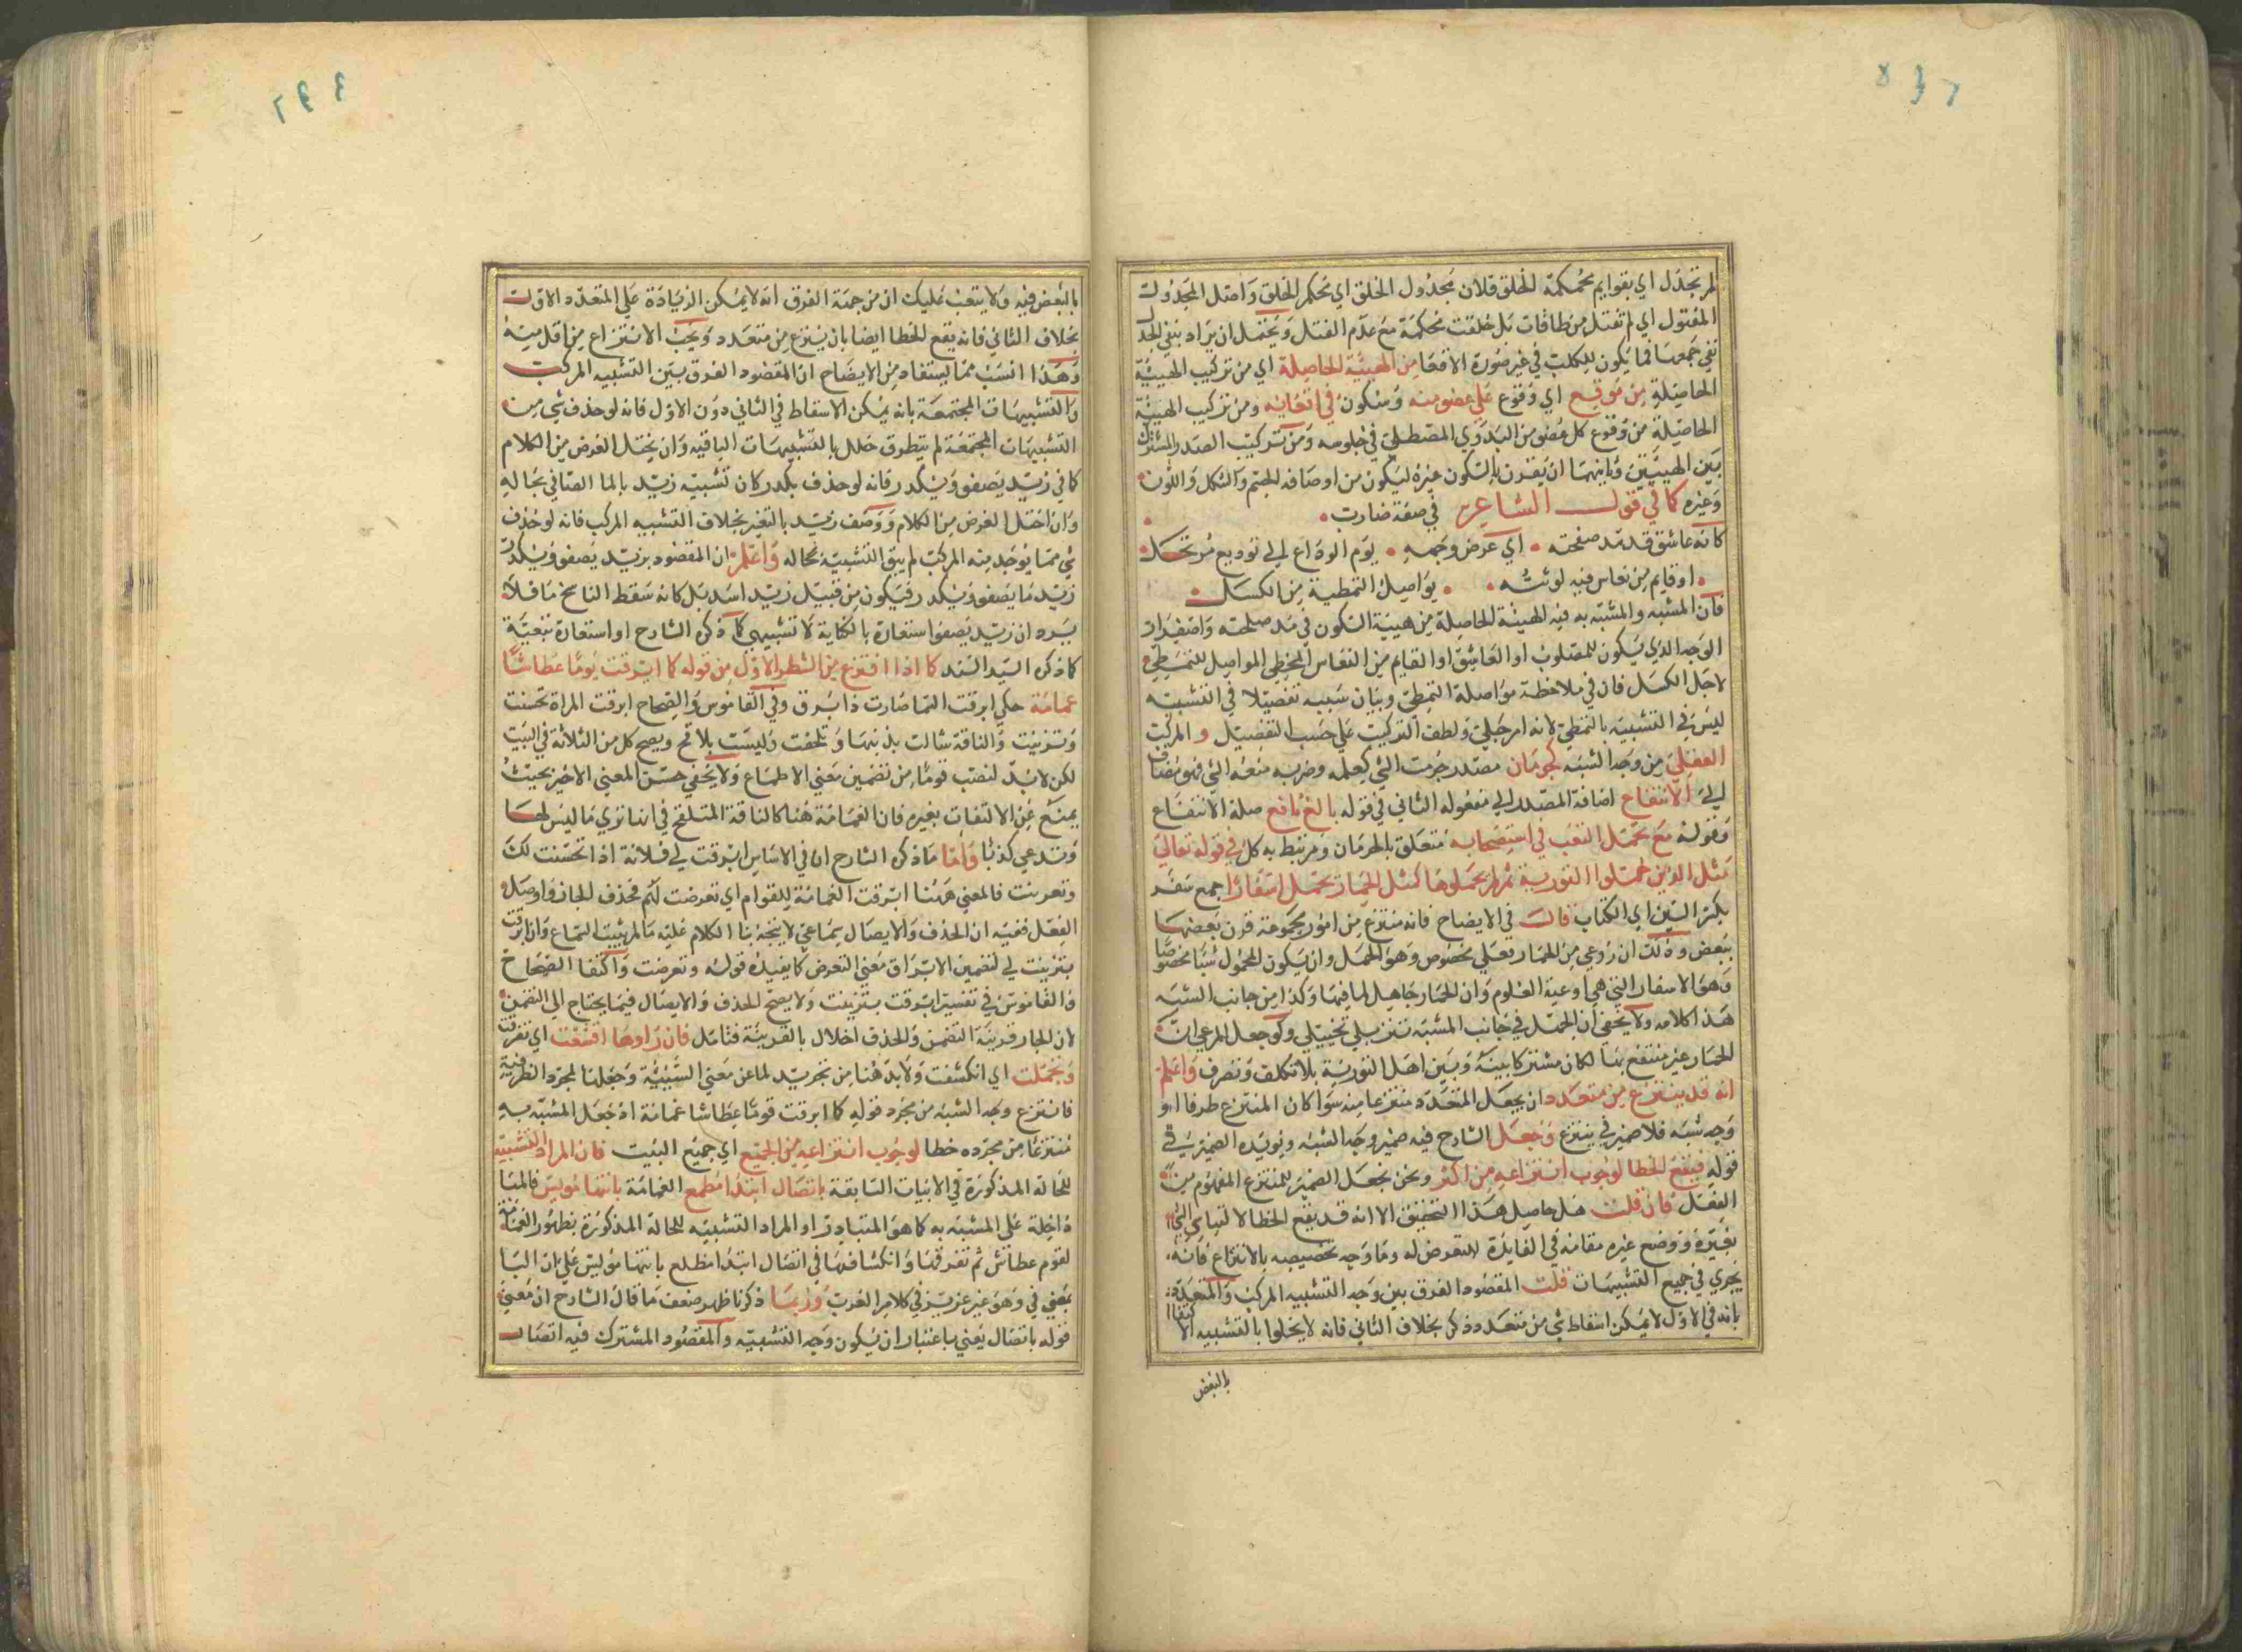 لم تجدل اي بقوايم محكمة الخلق فلان مجدول الخلق اي محكم الخلق واصل المجدول
المفتول اي لم تفتل من طاقات بل خلقت محكمة مع عدم الفتل ويحتمل ان يراد بنفي الجدل
نفي جمعها فما يكون للكلب في غير صورة الاقعا من الهيئة الحاصلة اي من تركيب الهيئة
الحاصلة من موقع اي وقوع علي عضو منه وسكون في اقعائه ومن تركيب الهيئة
الحاصلة من وقوع كل عضو من البدوي المصطلي في جلوسه ومن تركيب الصدر المشترك
بين الهيئتين وثانيهما ان يقرن بالسكون غيره ليكون من اوصافه الجسم والشكل واللون
وغيره كما في قول الشاعر في صفة ضارب
كانه عاشق قد مد صفحته اي عرض وجهه يوم الوداع الي توديع مرتحل
او قايم من نعاس فيه لوثته يواصل التمطية من الكسل
فان المشبه والمشبه به فيه الهيئة الحاصلة من هيئة السكون في مد صلحته واصفرار
الوجه الذي يكون للمصلوب او العاشق او القايم من النعاس المخطي المواصل للتمطي
لاجل الكسل فان في ملاحظة مواصلة التمطي وبيان سببه تفصيلا في التشبيه
ليس في التشبيه بالتمطي لانه امر جلي ولطف التركيب علي حسب التفصيل و المركب
العقلي من وجه الشبه كحرمان مصدر حرمت الشي كعلمه وضربه منعه الشي فهو مضاف
الي الانتفاع اضافة المصدر الي مفعوله الثاني في قوله بالغ نافع صلة الانتفاع
وقوله مع تحمل التعب في استصحابه متعلق بالحرمان ومرتبط به كل في قوله تعالي
مثل الذين حملوا التورية ثم لم يحملوها كمثل الحمار يحمل اسفارا جمع سفر
بكسر السين اي الكتاب قال في الايضاح فانه منتزع من امور مجموعة قرن بعضها
ببعض وذلك ان روعي من الحمار فعل مخصوص وهو الحمل وان يكون المحمول شيا مخصوصا
وهو الاسفار التي هي اوعية العلوم وان الحمار جاهل لما فيها وكذا من جانب الشبه
هذا كلامه ولا يخفي ان الحمل في جانب المشبه تنزيلي تخييلي ولو جعل المرعي ان
الحمار غير منتفع بها لكان مشتركا بينه وبين اهل التورية بلا تكلف وتصرف واعلم
انه قد ينتزع من متعدد ان يجعل المتعدد منتزعا منه سوا كان المنتزع طرفا او
وجه شبه فلا ضمير في ينتزع وجعل الشارح فيه ضمير وجه الشبه ويويده الضمير في
قوله فيقع الخطا لوجوب انتزاعه من اكثر ونحن نجعل الضمير للمنتزع المفهوم من
الفعل فان قلت هل حاصل هذا التحقيق الا انه قد يقع الخطا
بغيره ووضع غيره مقامه في الفايدة للتعرض له وما وجه تخصيصه بالانتزاع فانه
يجري في جميع التشبيهات قلت المقصود الفرق بين وجه التشبيه المركب والمتعدد
بانه في الاول لا يمكن اسقاط شي من متعدد ذكر بخلاف الثاني فانه لا يخلوا بالتشبيه الاكتفا
بالبعض
بالبعض فيه ولا يتعب عليك ان من جهة الفرق انه لا يمكن الزيادة علي المتعدد الاول
بخلاف الثاني فانه يقع الخطا ايضا بان ينتزع من متعدد ويجب الانتزاع من اقل منه
وهذا انسب مما يستفاد من الايضاح ان المقصود الفرق بين التشبيه المركب
والتشبيهات المجتمعة بانه يمكن الاسقاط في الثاني دون الاول فانه لو حذف شي من
التشبيهات المجتمعة لم يتطرق خلل بالتشبيهات الباقيه وان يختل الغرض من الكلام
كما في زيد يصفو ويكدر فانه لو حذف يكدر كان تشبيه زيد بالما الصافي بحاله
وان اختل الغرض من الكلام ووصف زيد بالتغير بخلاف التشبيه المركب فانه لو حذف
شي مما يوخذ منه المركب لم يبق التشبيه بحاله واعلم ان المقصود بزيد يصفو ويكدر
زيد ما يصفو ويكدر فيكون من قبيل زيد اسد بل كانه سقط الناسخ ما فلا
يرد ان زيد يصفوا ستعارة بالكناية لا تشبيهي كما ذكره الشارح او استعارة تبعية
كما ذكره السيد السند كما اذا انتزع من الشطر الاول من قوله كما ابرقت يوما عطاشا
غمامة حلي ابرقت السما صارت ذا برق وفي القاموس والصحاح ابرقت المراة تحسنت
وتزينت والناقة شالت بذنبها وتلحقت وليست بلاقح ويصح كل من الثلاثة في البيت
لكن لا بد لنصب قوما من تضمين معني الاطماع ولا يخفي حسن المعني الاخير بحيث
يمنع عن الالتفات بغيره فان الغمامة هنا كالناقة المتلقح في انها تري ما ليس لها
وتدعي كذبا واما ما ذكره الشارح ان في الاساس ابرقت لي فلانة اذا تحسنت لك
وتعرضت فالمعني ههنا ابرقت الغمامة للقوام اي تعرضت لهم فحذف الجار واوصل
الفعل ففيه ان الحذف والايصال سماعي لا يتجه بنا الكلام عليه ما لم يثبت السماع وان ابرقت
بتزينت لي لتضمين الابراق معني التعرض كما يفيده قوله وتعرضت واكتفا الصحاح
والقاموس في تفسير ابرقت بتزينت ولا يصح الحذف والايصال فيما يحتاج الي التضمن
لان الجار قرينة التضمن والحذف اخلال بالقرينة فتامل فان راوها اقشعت اي تفرقت
وتجلت اي انكشفت ولا بد هنا من تجريد لما عن معني السببية وجعلها لمجرد الظرفية
فانتزع وجه الشبه من مجرد قوله كما ابرقت قوما عطاشا غمامة اذ جعل المشبه به
منتزعا من مجرده خطا لوجوب انتزاعه من الجميع اي جميع البيت فان المراد التشبيه
للحالة المذكورة في الابيات السابقة باتصال ابتدا مطمع الغمامة بانتها مويس فالما
داخلة علي المشبه به كما هو المتبادر او المراد التشبيه للحالة المذكورة بظهور الغمامة
لقوم عطاش ثم تفرقها وانكشافها في اتصال ابتدا مطلع بانتها مويس علي ان البا
بمعني في وهو غير عزيز في كلام العرب وربما ذكرنا ظهر ضعف ما قال الشارح ان معني
قوله باتصال يعني باعتبار ان يكون وجه التشبيه والمقصود المشترك فيه اتصال